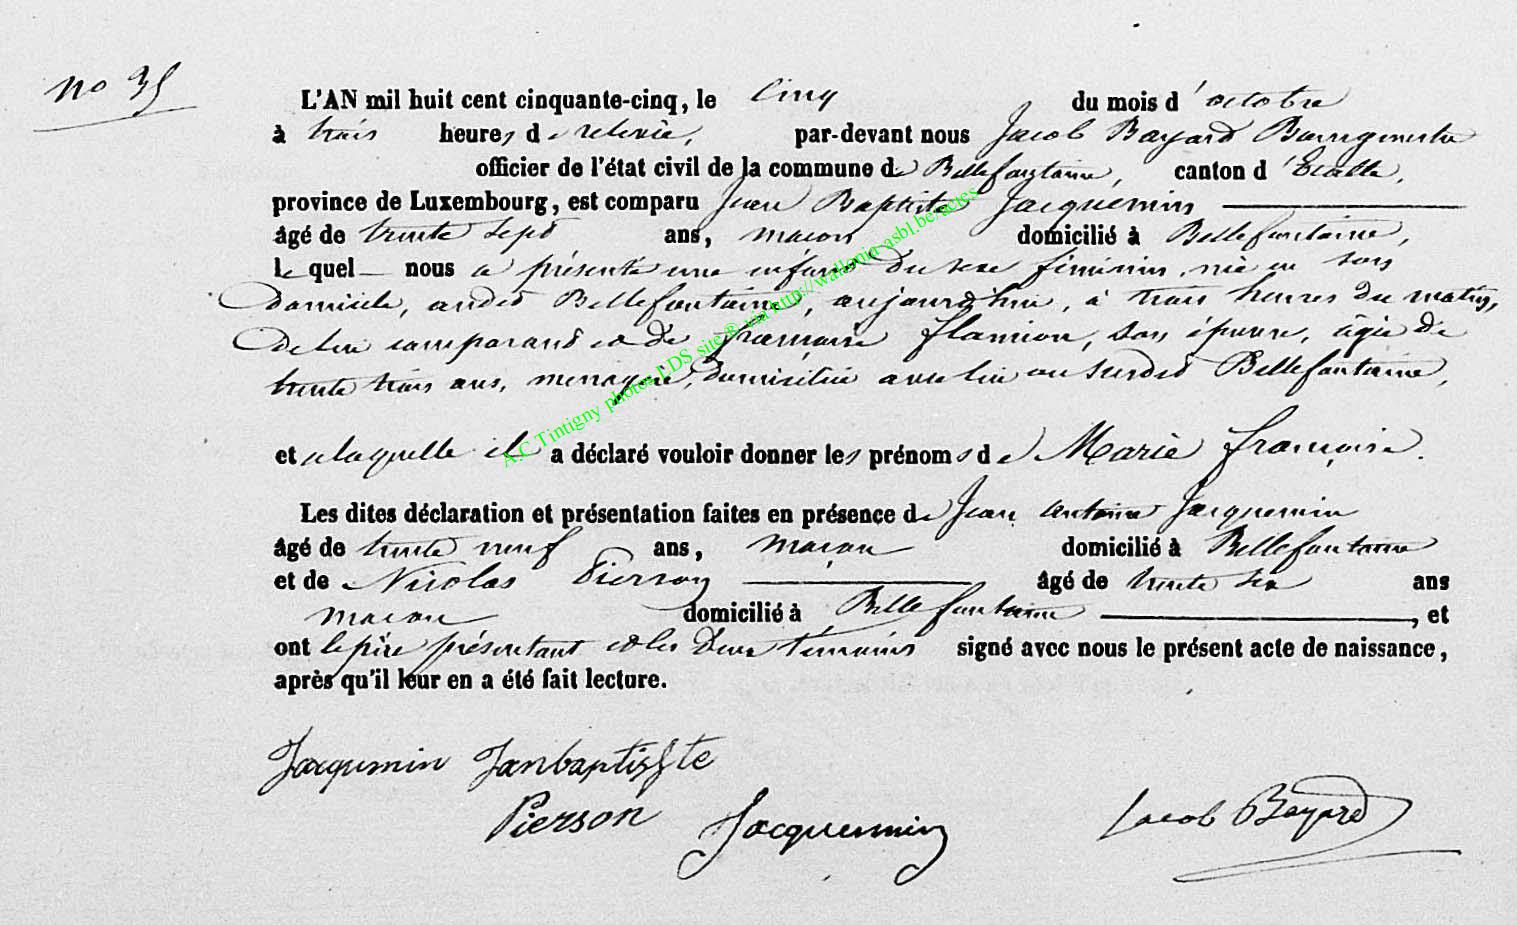 no 35
L'AN mil huit cent cinquante-cinq, le cinq du mois d'octobre
à trois heures de relevée, par-devant nous Jacob Bayard Bourgmestre
officier de l'état civil de la commune de Bellefontaine, canton d'Etalle,
province de Luxembourg, est comparu Jean Baptiste Jacquemin
âgé de trente sept ans, maçon domicilié à Bellefontaine,
lequel nous a présenté une enfant du sexe féminin, née en son
domicile, audit Bellefontaine, aujourd'hui, à trois heures du matin,
de lui comparant et de françoise flamion, son épouse, âgée de
trente trois ans, menagère, domiciliée avec lui au susdit Bellefontaine,
et a laquelle il a déclaré vouloir donner les prénoms de Marie françoise.
Les dites déclaration et présentation faites en présence de Jean antoine Jacquemin
âgé de trente neuf ans, maçon domicilié à Bellefontaine
et de Nicolas Pierson âgé de trente six ans
maçon domicilié à Bellefontaine, et
ont le père présentant et les deux témoins signé avec nous le présent acte de naissance,
après qu'il leur en a été fait lecture.
Jacqumin Janbaptisste
Pierson Jacquemin Jacob Bayard
A.C Tintigny photos LDS site® via http://wallonia-asbl.be/actes